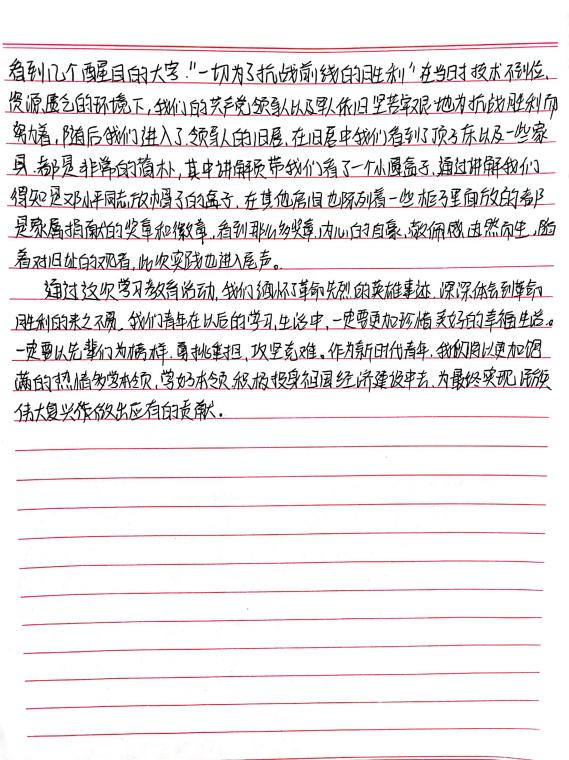 看到几个醒目的大字:“一切为了抗战前线的胜利”在当时技术不到位、
资源匮乏的环境下,我们的共产党领导人以及军人依旧坚苦卓艰地为抗战胜利而
努力着,随后我们进入了领导人的旧居,在旧居中我们看到了顶子床以及一些家
具,都是非常的简朴,其中讲解员带我们看了一个小圆盒子,通过讲解我们
得知是邓小平同志放帽子的盒子,在其他房间也陈列着一些柜子里面放的都
是家属捐献的奖章和徽章,看到那么多奖章,内心的自豪、敬佩感由然而生,随
着对旧址的观看,此次实践也进入尾声。
通过这次学习教育活动,我们缅怀了革命先烈的英雄事迹,深深体会到革命
胜利的来之不易。我们青年在以后的学习生活中,一定要更加珍惜美好的幸福生活。
一定要以先辈们为榜样,勇挑重担,攻坚克难。作为新时代青年,我们将以更加饱
满的热情学本领,学好本领,积极投身祖国经济建设中去,为最终实现民族
伟大复兴作做出应有的贡献。